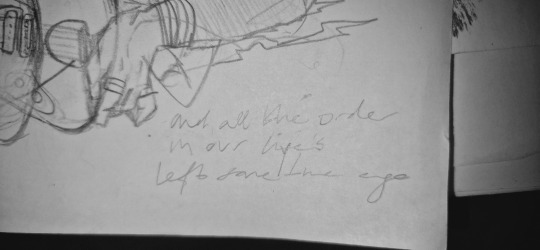 and all the order
in our live's
left some time ago